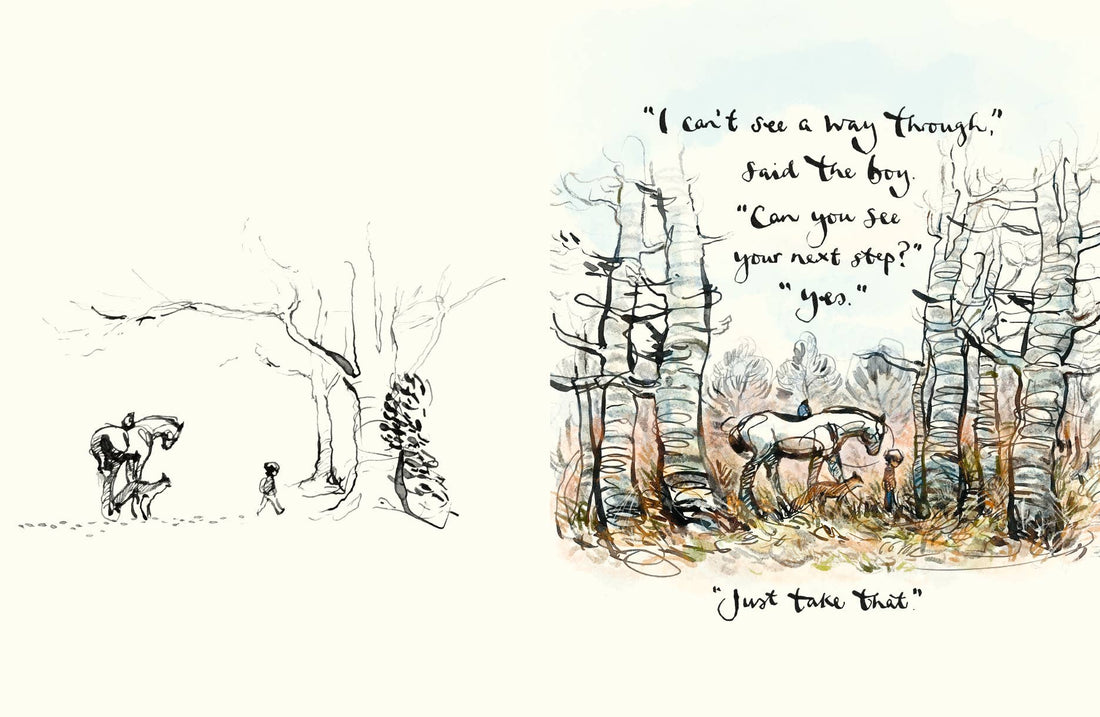 "I can't see a way through,"
said the boy.
"Can you see
your next step?"
"Yes."
"Just take that."